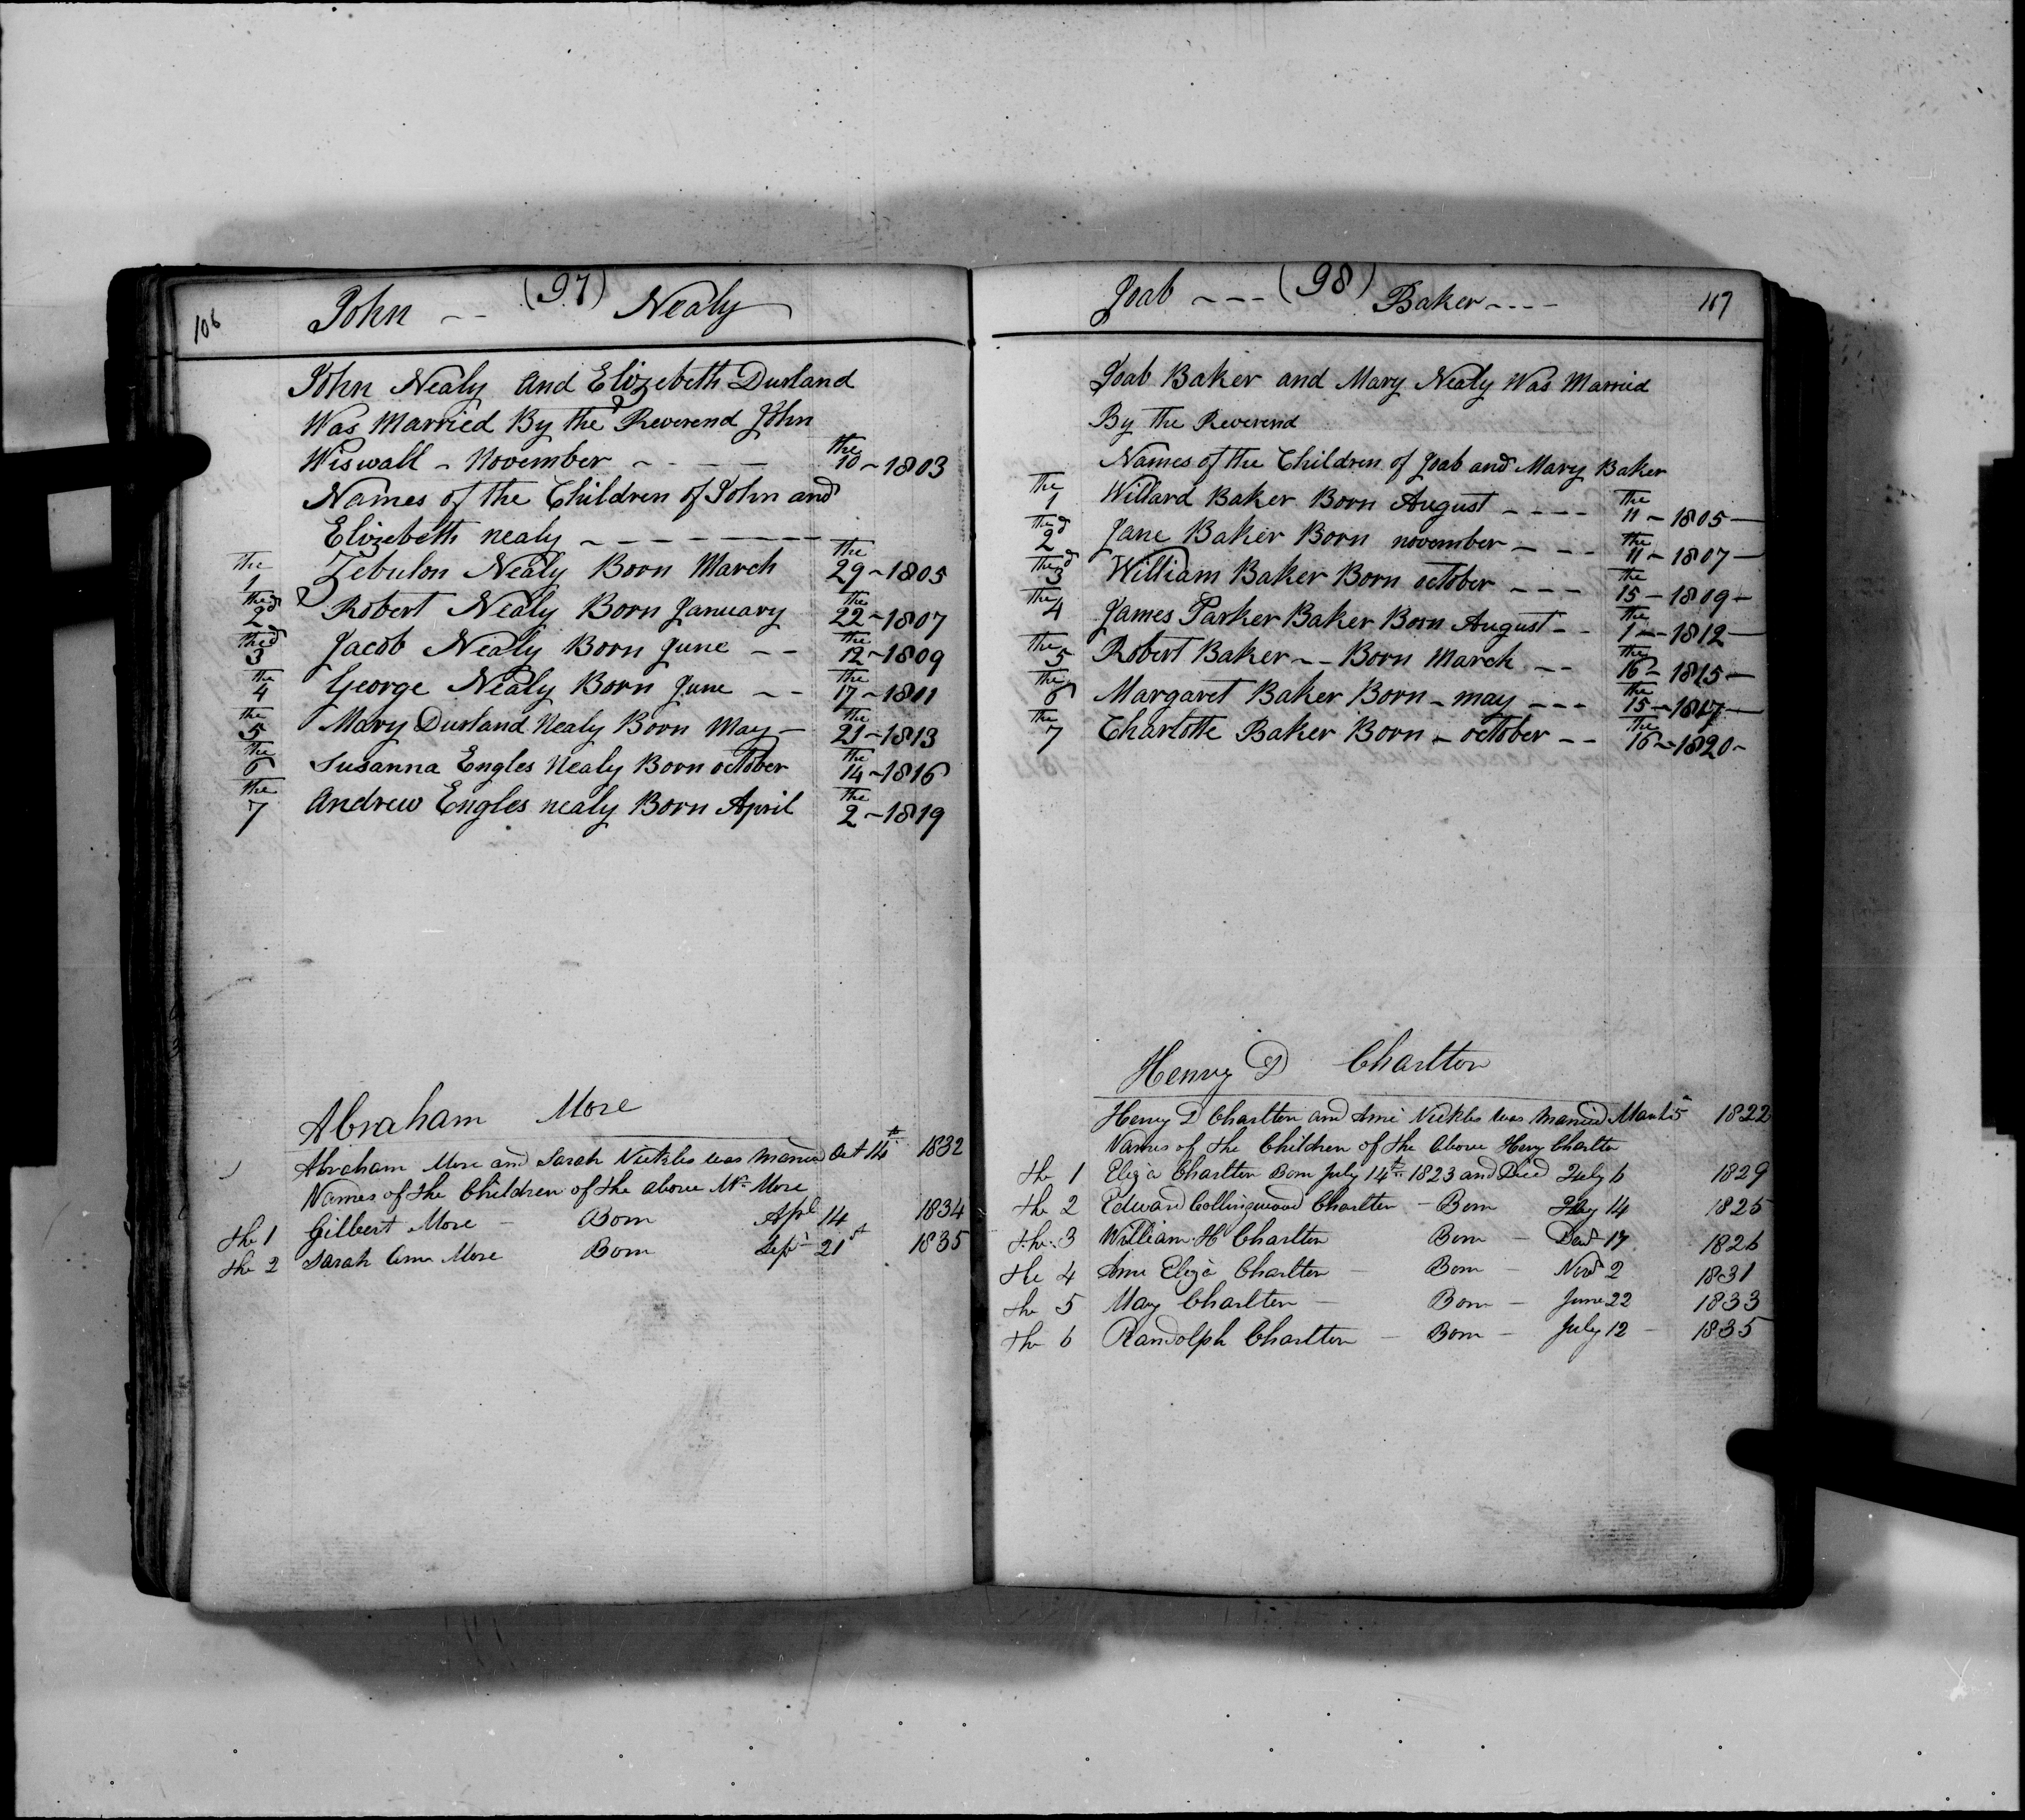 106 John -- (97) Nealy
John Nealy and Elizebeth Durland
Was Married By the Reverend John
Wiswall - November - - - - the 10 - 1803
Names of the Children of John and
Elizebeth nealy - - - - - - -
the 1 Zebulon Nealy Born March the 29 - 1805
the 2d Robert Nealy Born January the 22 - 1807
the 3d Jacob Nealy Born June -- the 12 - 1809
the 4 George Nealy Born June -- the 17 - 1811
the 5 Mary Durland Nealy Born May - the 21 - 1813
the 6 Susanna Engles Nealy Born october the 14 - 1816
the 7 Andrew Engles nealy Born April the 2 - 1819
Abraham More
Abraham More and Sarah Nickles was married Oct 14th 1832
Names of the Children of the above Mr More
the 1 Gilbert More - Born Apl 14 1834
the 2 Sarah Ann More Born Sept 21st 1835
Joab --- (98) Baker ---- 107
Joab Baker and Mary Nealy Was Married
By the Reverend
Names of the Children of Joab and Mary Baker
the 1 Willard Baker Born August ---- the 11 - 1805 -
the 2d Jane Baker Born november --- the 11 - 1807 -
the 3d William Baker Born october --- the 15 - 1809 -
the 4 James Parker Baker Born August -- the 1 -- 1812 -
the 5 Robert Baker -- Born March -- the 16 - 1815 -
the 6 Margaret Baker Born - may --- the 15 - 1817 -
the 7 Charlotte Baker Born - october -- the 16 - 1820 -
Henry D Charlton
Henry D Charlton and Ami Nickles was married 1822
Names of the Children of the above Henry Charlton
the 1 Eliza Charlton Born July 14th 1823 and Died July 6 1829
the 2 Edward Collingwood Charlton - Born 14 1825
the 3 William H Charlton Born - 17 1826
the 4 Ami Eliza Charlton - Born - Novr 2 1831
the 5 Mary Charlton - Born - June 22 1833
the 6 Randolph Charlton - Born - July 12 - 1835